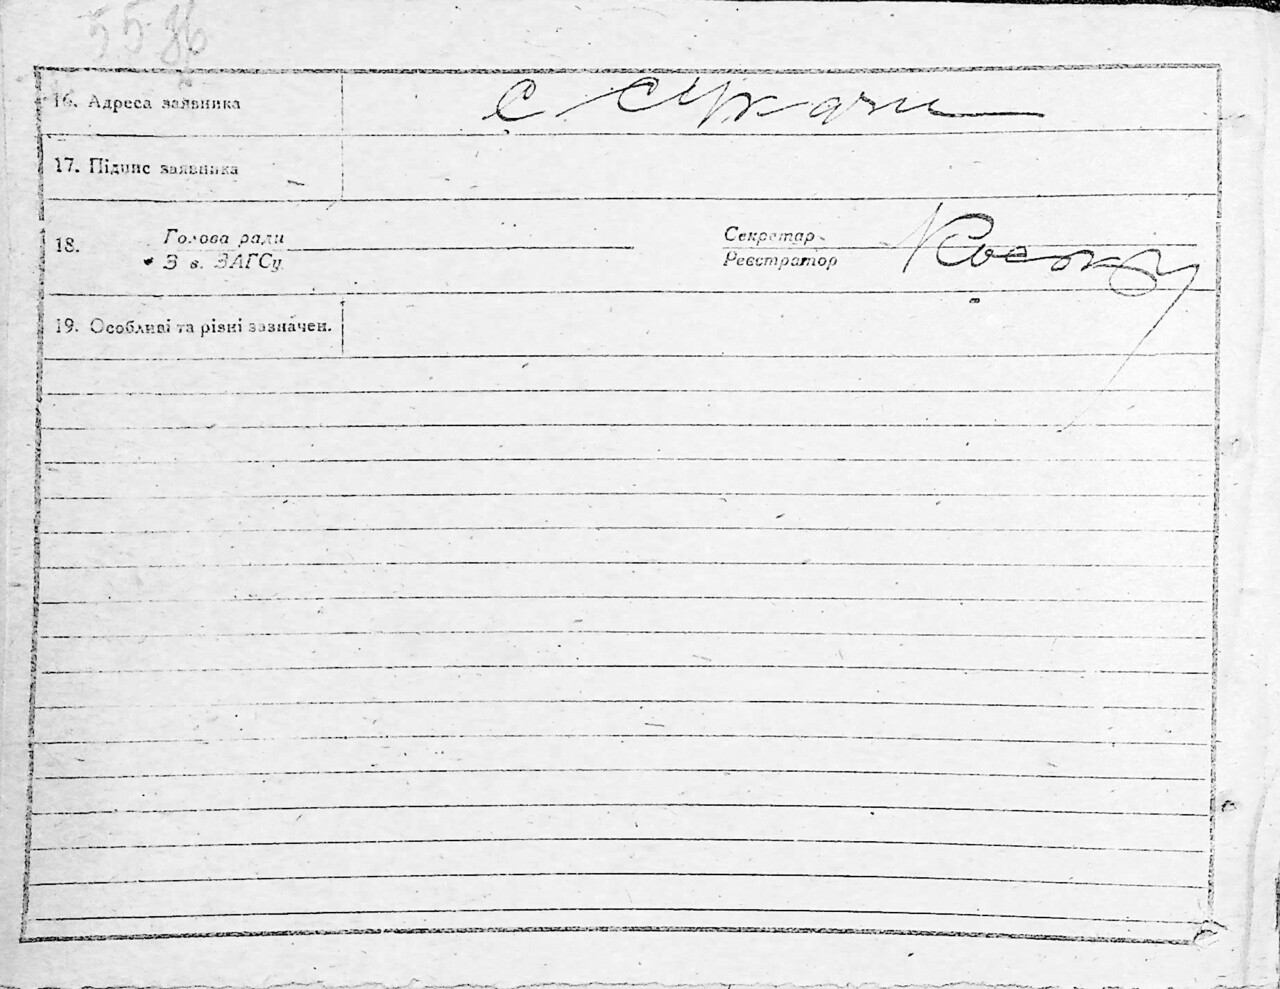 55 зв
16. Адреса заявника с Сукачи
17. Підпис заявника
18. Голова ради Секретар
Зав. ЗАГСу Реєстратор
19. Особливі та рівні зазначен.